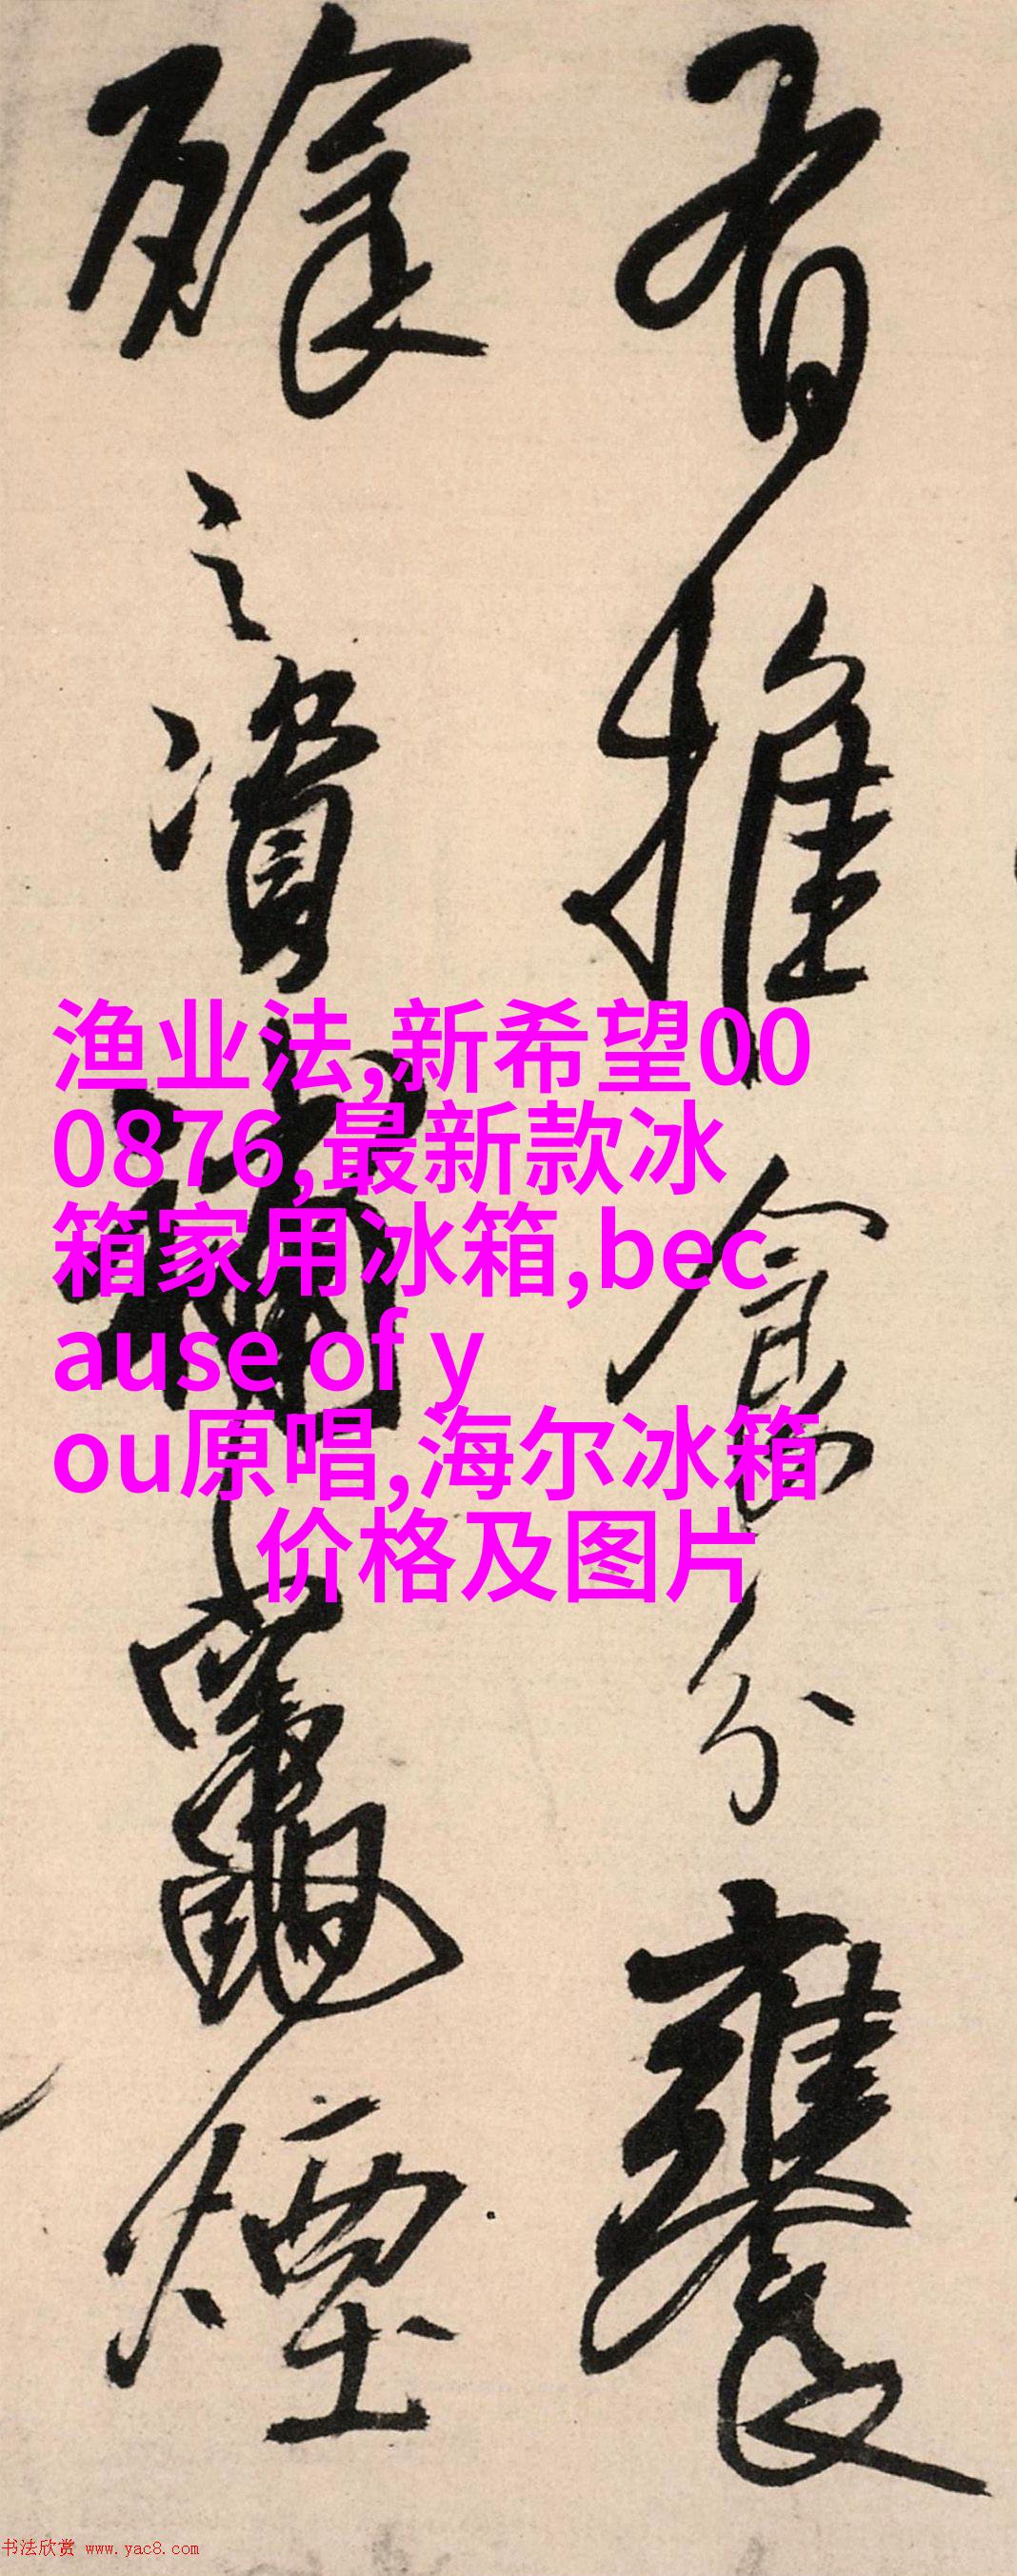 有推食分饔
飱之資補竈煙
渔业法,新希望00
0876,最新款冰
箱家用冰箱,bec
ause of y
ou原唱,海尔冰箱
价格及图片
书法欣赏 www.yac8.com